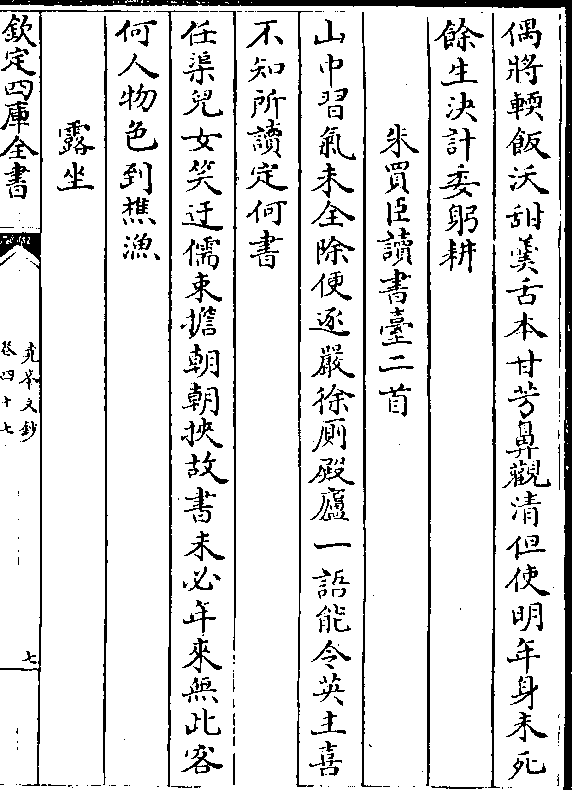 偶將輭飯沃甜羮舌本甘芳鼻觀清但使明年身未死
餘生決計委躬耕
朱買臣讀書臺二首
山中習氣未全除便逐嚴徐厠殿廬一語能令英主喜
不知所讀定何書
任渠兒女笑迂儒束擔朝朝挾故書未必年來無此客
何人物色到樵漁
露坐
欽定四庫全書
堯峯文鈔
卷四十七
七